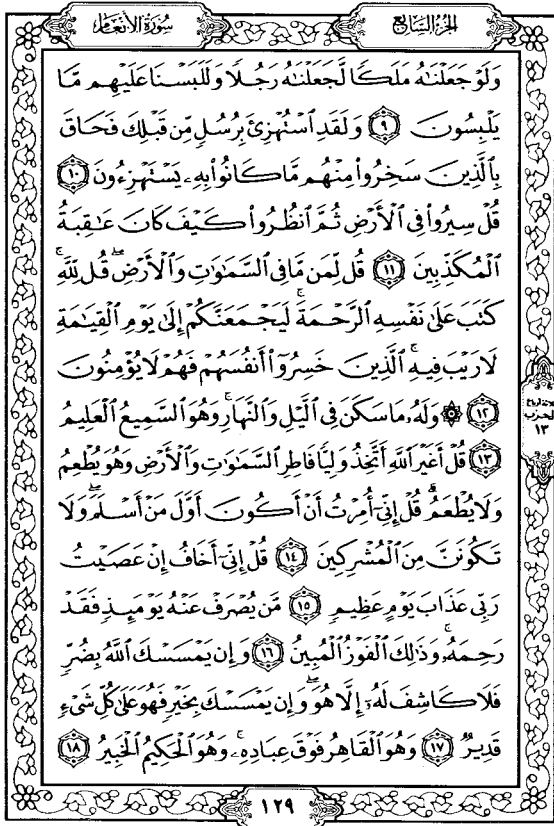 سُورَةُ الأَنْعَامِ
الجُزْءُ السَّابِعُ
وَلَوْ جَعَلْنَٰهُ مَلَكًا لَّجَعَلْنَٰهُ رَجُلًا وَلَلَبَسْنَا عَلَيْهِم مَّا
يَلْبِسُونَ ٩ وَلَقَدِ ٱسْتُهْزِئَ بِرُسُلٍ مِّن قَبْلِكَ فَحَاقَ
بِٱلَّذِينَ سَخِرُوا۟ مِنْهُم مَّا كَانُوا۟ بِهِۦ يَسْتَهْزِءُونَ ١٠
قُلْ سِيرُوا۟ فِي ٱلْأَرْضِ ثُمَّ ٱنظُرُوا۟ كَيْفَ كَانَ عَٰقِبَةُ
ٱلْمُكَذِّبِينَ ١١ قُل لِّمَن مَّا فِي ٱلسَّمَٰوَٰتِ وَٱلْأَرْضِ ۖ قُل لِّلَّهِ ۚ
كَتَبَ عَلَىٰ نَفْسِهِ ٱلرَّحْمَةَ ۚ لَيَجْمَعَنَّكُمْ إِلَىٰ يَوْمِ ٱلْقِيَٰمَةِ
لَا رَيْبَ فِيهِ ۚ ٱلَّذِينَ خَسِرُوٓا۟ أَنفُسَهُمْ فَهُمْ لَا يُؤْمِنُونَ
١٢ ۞ وَلَهُۥ مَا سَكَنَ فِي ٱلَّيْلِ وَٱلنَّهَارِ ۚ وَهُوَ ٱلسَّمِيعُ ٱلْعَلِيمُ
١٣ قُلْ أَغَيْرَ ٱللَّهِ أَتَّخِذُ وَلِيًّا فَاطِرِ ٱلسَّمَٰوَٰتِ وَٱلْأَرْضِ وَهُوَ يُطْعِمُ
وَلَا يُطْعَمُ ۗ قُلْ إِنِّيٓ أُمِرْتُ أَنْ أَكُونَ أَوَّلَ مَنْ أَسْلَمَ ۖ وَلَا
تَكُونَنَّ مِنَ ٱلْمُشْرِكِينَ ١٤ قُلْ إِنِّيٓ أَخَافُ إِنْ عَصَيْتُ
رَبِّي عَذَابَ يَوْمٍ عَظِيمٍ ١٥ مَّن يُصْرَفْ عَنْهُ يَوْمَئِذٍ فَقَدْ
رَحِمَهُۥ ۚ وَذَٰلِكَ ٱلْفَوْزُ ٱلْمُبِينُ ١٦ وَإِن يَمْسَسْكَ ٱللَّهُ بِضُرٍّ
فَلَا كَاشِفَ لَهُۥٓ إِلَّا هُوَ ۖ وَإِن يَمْسَسْكَ بِخَيْرٍ فَهُوَ عَلَىٰ كُلِّ شَيْءٍ
قَدِيرٌ ١٧ وَهُوَ ٱلْقَاهِرُ فَوْقَ عِبَادِهِۦ ۚ وَهُوَ ٱلْحَكِيمُ ٱلْخَبِيرُ ١٨
ثلاثة أرباع
الحزب
١٣
١٢٩